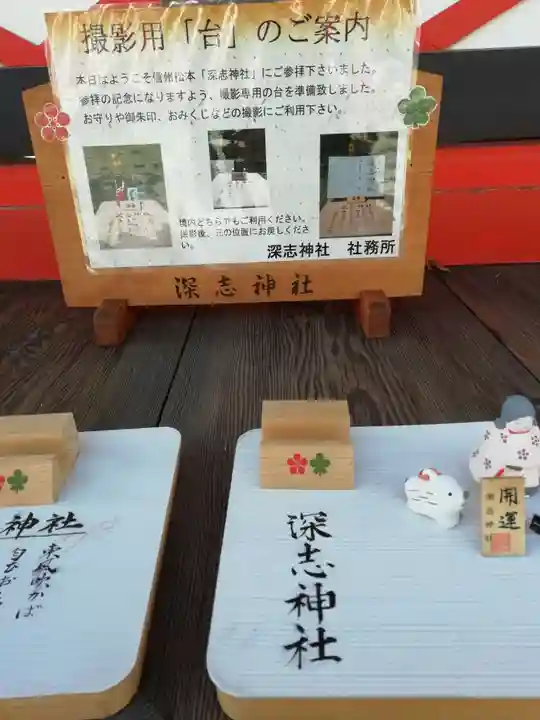 撮影用「台」のご案内
本日はようこそ信州松本「深志神社」にご参拝下さいました。
参拝の記念になりますよう、撮影専用の台を準備致しました。
お守りや御朱印、おみくじなどの撮影にご利用下さい。
境内どちらでもご利用ください。
撮影後、元の位置にお戻しくださ
い。
深志神社 社務所
深志神社
神社
東風吹かば
深志神社
開運